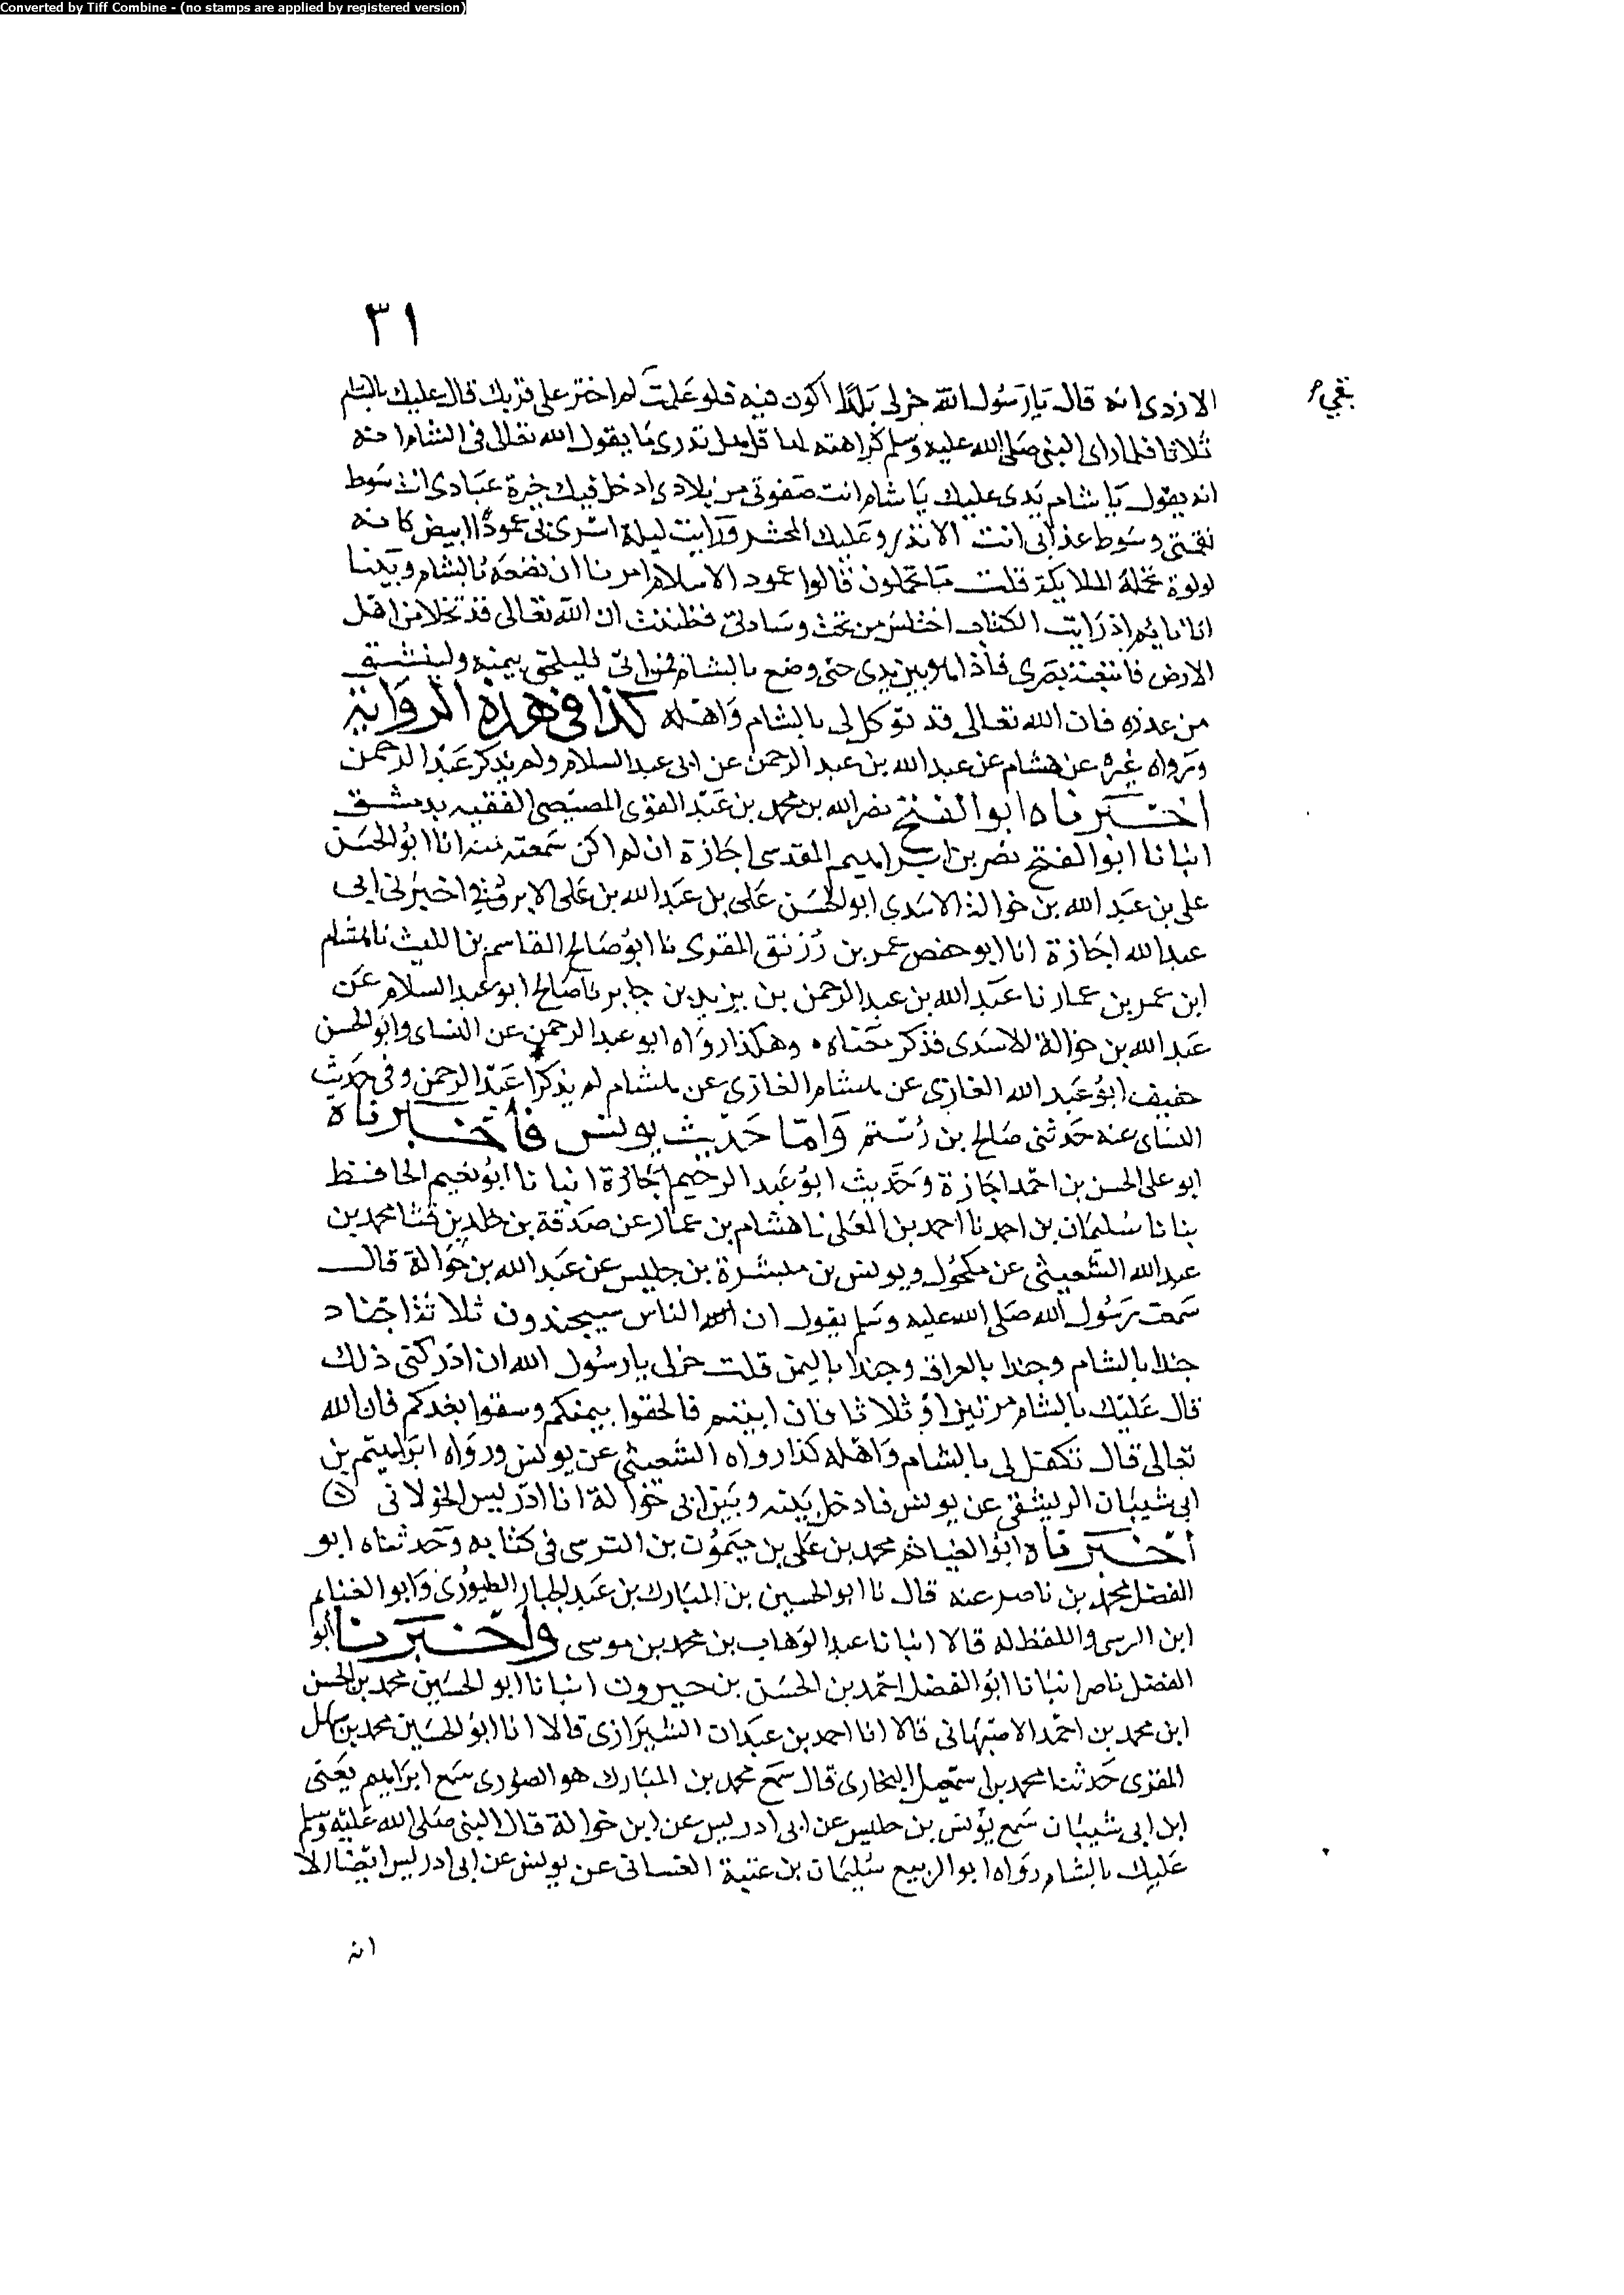 Converted by Tiff Combine - (no stamps are applied by registered version)
٣١
الازدى انه قال يا رسول الله خر لى بلدًا اكون فيه فلو علمت لم اختر على قربك قال عليك بالشام
ثلاثا فلما راى النبى صلى الله عليه وسلم كراهته لها قال هل تدرى ما يقول الله تعالى فى الشام انه
انه يقول يا شام يدى عليك يا شام انت صفوتى من بلادى ادخل فيك خيرة عبادى انت سوط
نقمتى وسوط عذابى انت الانذر وعليك المحشر ورايت ليلة اسرى بى عمودًا ابيض كانه
لولوة تحمله الملايكة قلت ما تحملون قالوا عمود الاسلام امرنا ان نضعه بالشام وبينا
انا نايم اذ رايت الكتاب اختلس من تحت وسادتى فظننت ان الله تعالى قد تخلا من اهل
الارض فاتبعته بصرى فاذا هو بين يدى حتى وضع بالشام فمن ابى فليلحق بيمنه وليستق
من غدره فان الله تعالى قد توكل لى بالشام واهله كذا فى هذه الرواية
ورواه غيره عن هشام عن عبد الله بن عبد الرحمن عن ابى عبد السلام ولم يذكر عبد الرحمن
اخبرناه ابو الفتح نصر الله بن محمد بن عبد القوى المصيصى الفقيه بدمشق
انبانا ابو الفتح نصر بن ابراهيم المقدسى اجازة ان لم اكن سمعته منه انا ابو الحسن
على بن عبد الله بن حوالة الاسدى ابو الحسن على بن عبد الله بن على اخبرنى ابى
عبد الله اجازة انا ابو حفص عمر بن المقرى نا ابو صالح القاسم بن الليث نا هشام
ابن عمر بن عمار نا عبد الله بن عبد الرحمن بن يزيد بن جابر نا صالح ابو عبد السلام عن
عبد الله بن حوالة الاسدى فذكر وهكذا رواه ابو عبد الرحمن عن النساى وابو الحسن
ابو عبد الله الغازى عن هشام الغازى عن هشام لم يذكرا عبد الرحمن وفى حديث
النساى عنه حدثنى صالح بن رستم واما حديث يونس فاخبرناه
ابو على الحسن بن احمد اجازة وحديث ابو عبد الرحيم اجازة انبانا ابو نعيم الحافظ
بنانا سليمان بن احمد نا احمد بن المعلى نا هشام بن عمار عن صدقة بن خلد بن محمد بن
عبد الله الشعيثى عن مكحول ويونس بن ميسرة بن حلبس عن عبد الله بن حوالة قال
سمعت رسول الله صلى الله عليه وسلم يقول ان الناس سيجندون ثلاثة اجناد
جندا بالشام وجندا بالعراق وجندا باليمن قلت خر لى يا رسول الله ان ادركنى ذلك
قال عليك بالشام مرتين او ثلاثا فان ابيتم فالحقوا بيمنكم وسقوا بغدركم فان الله
تعالى قال تكفل لى بالشام واهله كذا رواه الشعيثى عن يونس ورواه ابراهيم بن
ابى شيبان عن يونس فادخل بينه وبين ابى حوالة انا ادريس الخولانى
اخبرناه ابو الغنائم محمد بن على بن ميمون بن النرسى فى كتابه وحدثناه ابو
الفضل محمد بن ناصر عنه قال نا ابو الحسين بن المبارك بن عبد الجبار الطيورى وابو الغنايم
ابن النرسى واللفظ له قالا انبانا عبد الوهاب بن محمد بن موسى واخبرنا ابو
الفضل ناصر انبانا ابو الفضل احمد بن الحسن بن خيرون انبانا ابو الحسين محمد بن الحسن
ابن محمد بن احمد الاصبهانى قالا انا احمد بن عبدان الشيرازى قالا انا ابو الحسين محمد بن سهل
المقرى حدثنا محمد بن اسمعيل البخارى قال سمع محمد بن المبارك هو الصورى سمع ابراهيم يعنى
ابن ابى شيبان سمع يونس بن حلبس عن ابى ادريس عن ابن حوالة قال النبى صلى الله عليه وسلم
عليك بالشام رواه ابو الربيع سليمان بن عتبة الغسانى عن يونس عن ابى ادريس ايضا الا
انه